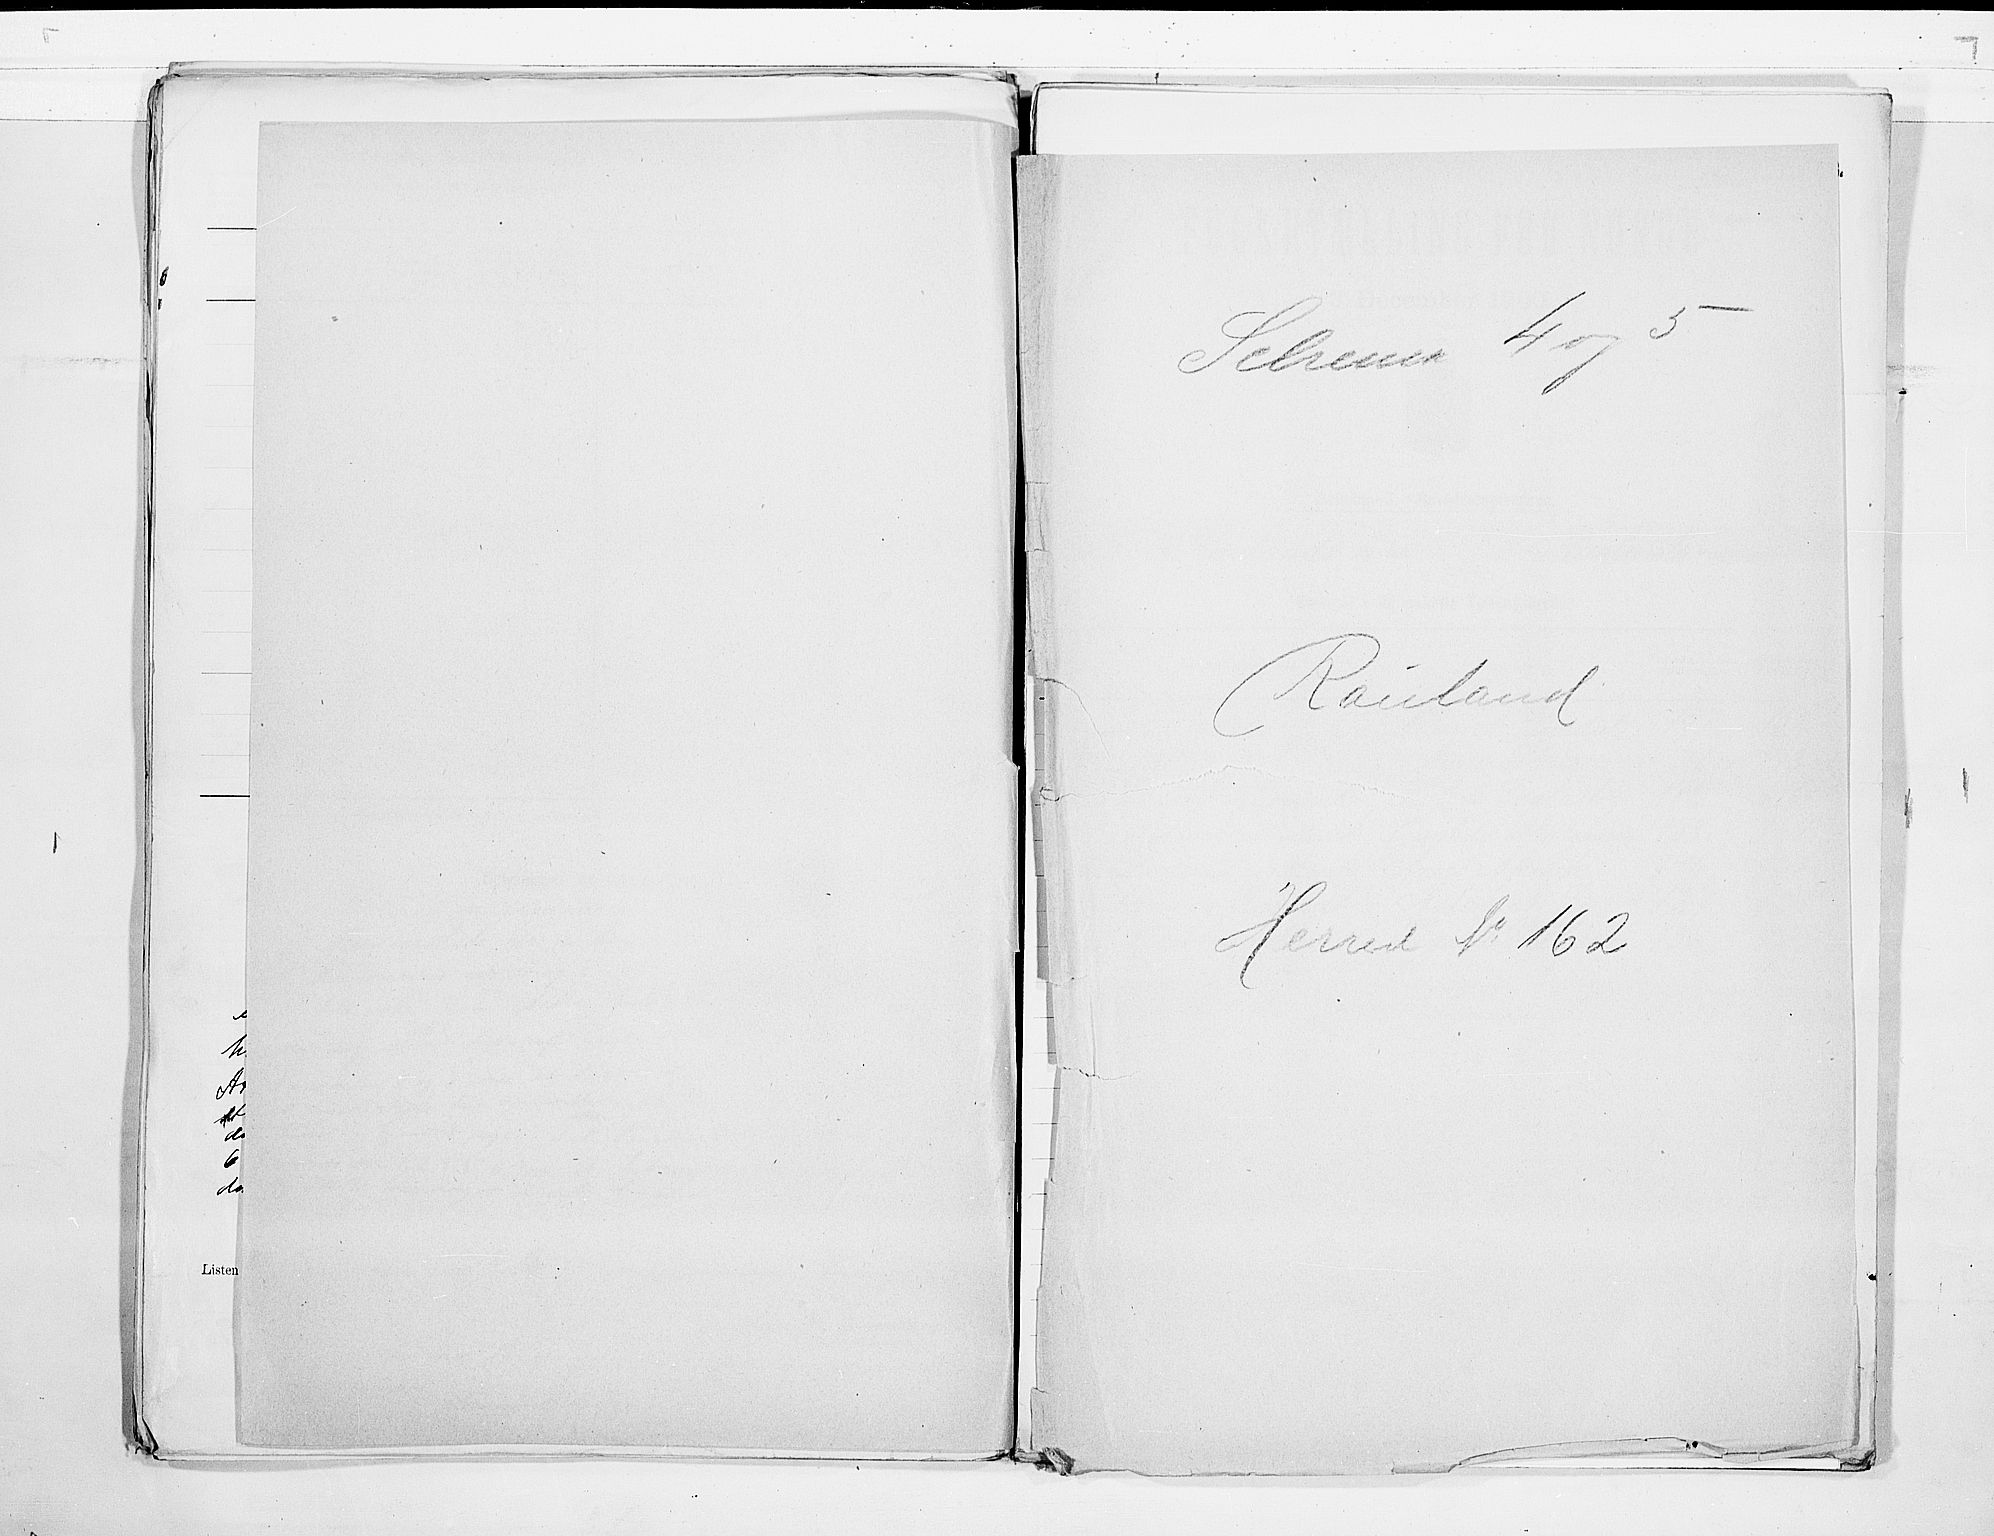 Listen
Schema 4 og 5
Rauland
Herred No 162